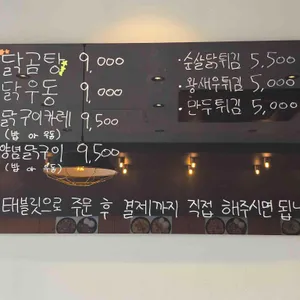 닭곰탕 9,000
닭우동 9,000
닭구이카레 9,500
(밥 or 우동)
양념닭구이 9,500
(밥 or 우동)
·순살닭튀김 5,500
·왕새우튀김 5,000
·만두튀김 5,000
태블릿으로 주문 후 결제까지 직접 해주시면 됩니